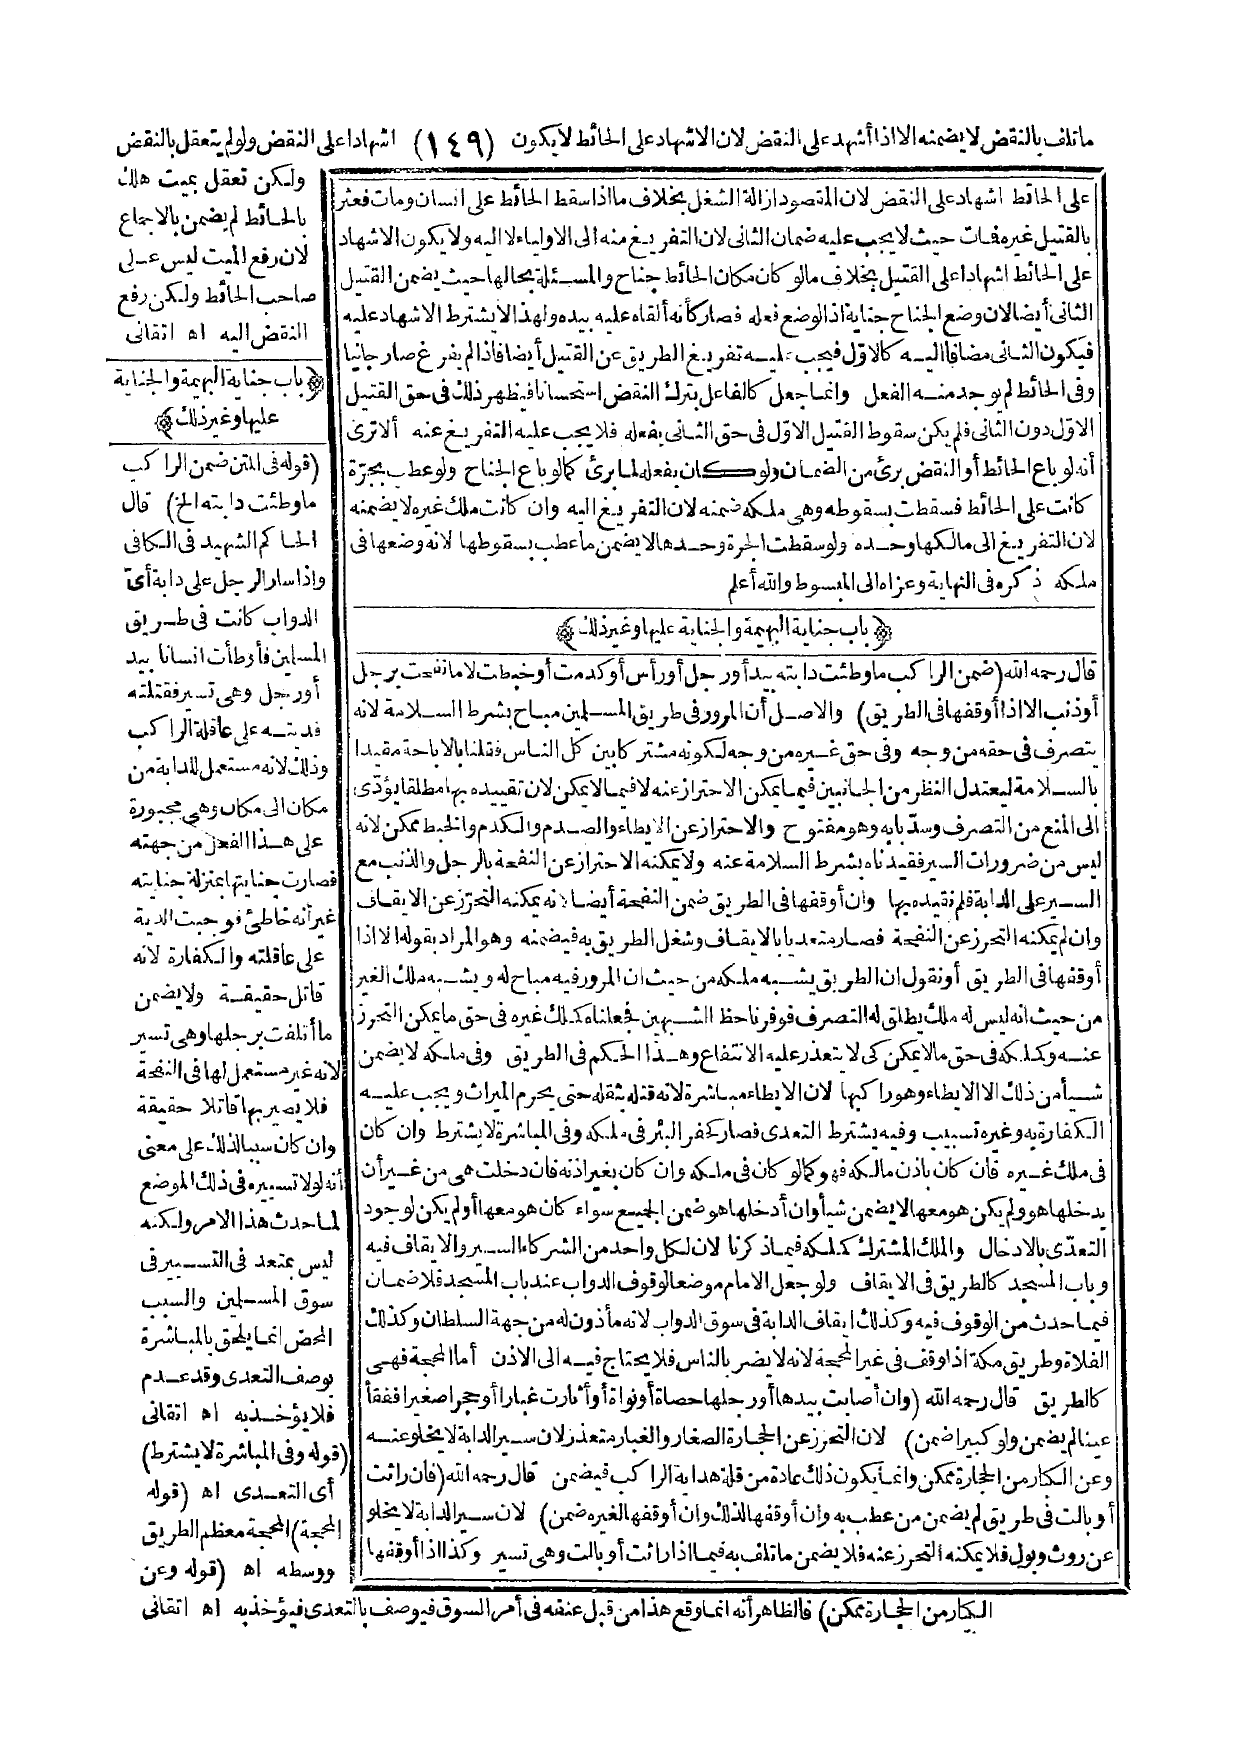 ماتلف بالنقض لا يضمنه الا اذا أشهد على النقض لان الاشهاد على الحائط لا يكون (١٤٩) اشهادا على النقض ولو لم يتعقل بالنقض
ولكن تعقل بميت هلك
بالحائط لم يضمن بالاجماع
لان رفع الميت ليس على
صاحب الحائط ولكن رفع
النقض اليه اه اتقانى
﴿باب جناية البهيمة والجناية
عليها وغير ذلك﴾
(قوله فى المتن ضمن الراكب
ما وطئت دابته الخ) قال
الحاكم الشهيد فى الكافى
واذا سار الرجل على دابة أى
الدواب كانت فى طريق
المسلمين فأوطأت انسانا بيد
أو رجل وهى تسير فقتلته
فديته على عاقلة الراكب
وذلك لانه مستعمل للدابة من
مكان الى مكان وهى مجبورة
على هذا الفعل من جهته
فصارت جنايتها بمنزلة جنايته
غير أنه خاطئ فوجبت الدية
على عاقلته والكفارة لانه
قاتل حقيقة ولا يضمن
ما أتلفت برجلها وهى تسير
لانه غير مستعمل لها فى النفحة
فلا يصير بها قاتلا حقيقة
وان كان سببا لذلك على معنى
أنه لولا تسييره فى ذلك الموضع
لما حدث هذا الامر ولكنه
ليس بمتعد فى التسيير فى
سوق المسلمين والسبب
المحض انما يلحق بالمباشرة
بوصف التعدى وقد عدم
فلا يؤخذ به اه اتقانى
(قوله وفى المباشرة لا يشترط)
أى التعدى اه (قوله
المحجة) المحجة معظم الطريق
ووسطه اه (قوله وعن
على الحائط اشهاد على النقض لان المقصود ازالة الشغل بخلاف ما اذا سقط الحائط على انسان ومات فعثر
بالقتيل غيره فمات حيث لا يجب عليه ضمان الثانى لان التفريغ منه الى الاولياء لا اليه ولا يكون الاشهاد
على الحائط اشهادا على القتيل بخلاف ما لو كان مكان الحائط جناح والمسئلة بحالها حيث يضمن القتيل
الثانى أيضا لان وضع الجناح جناية اذ الوضع فعله فصار كأنه ألقاه عليه بيده ولهذا لا يشترط الاشهاد عليه
فيكون الثانى مضافا اليه كالاول فيجب عليه تفريغ الطريق عن القتيل أيضا فاذا لم يفرغ صار جانيا
وفى الحائط لم يوجد منه الفعل وانما جعل كالفاعل بترك النقض استحسانا فيظهر ذلك فى حق القتيل
الاول دون الثانى فلم يكن سقوط القتيل الاول فى حق الثانى بفعله فلا يجب عليه التفريغ عنه ألا ترى
أنه لو باع الحائط أو النقض برئ من الضمان ولو كان بفعله لما برئ كما لو باع الجناح ولو عطب بجرّة
كانت على الحائط فسقطت بسقوطه وهى ملكه ضمنه لان التفريغ اليه وان كانت ملك غيره لا يضمنه
لان التفريغ الى مالكها وحده ولو سقطت الجرة وحدها لا يضمن ما عطب بسقوطها لانه وضعها فى
ملكه ذكره فى النهاية وعزاه الى المبسوط والله أعلم
﴿باب جناية البهيمة والجناية عليها وغير ذلك﴾
قال رحمه الله (ضمن الراكب ما وطئت دابته بيد أو رجل أو رأس أو كدمت أو خبطت لا ما نفحت برجل
أو ذنب الا اذا أوقفها فى الطريق) والاصل أن المرور فى طريق المسلمين مباح بشرط السلامة لانه
يتصرف فى حقه من وجه وفى حق غيره من وجه لكونه مشتركا بين كل الناس فقلنا بالاباحة مقيدا
بالسلامة ليعتدل النظر من الجانبين فيما يمكن الاحتراز عنه لا فيما لا يمكن لان تقييده بها مطلقا يؤدّى
الى المنع من التصرف وسدّ بابه وهو مفتوح والاحتراز عن الايطاء والصدم والكدم والخبط ممكن لانه
ليس من ضرورات السير فقيدناه بشرط السلامة عنه ولا يمكنه الاحتراز عن النفحة بالرجل والذنب مع
السير على الدابة فلم نقيده بها وان أوقفها فى الطريق ضمن النفحة أيضا لانه يمكنه التحرّز عن الايقاف
وان لم يمكنه التحرز عن النفحة فصار متعديا بالايقاف وشغل الطريق به فيضمنه وهو المراد بقوله الا اذا
أوقفها فى الطريق أو نقول ان الطريق يشبه ملكه من حيث ان المرور فيه مباح له ويشبه ملك الغير
من حيث انه ليس له ملك يطلق له التصرف فوفرنا حظ الشبهين فجعلناه كملك غيره فى حق ما يمكن التحرز
عنه وكملكه فى حق ما لا يمكن كى لا يتعذر عليه الانتفاع وهذا الحكم فى الطريق وفى ملكه لا يضمن
شيأ من ذلك الا الايطاء وهو راكبها لان الايطاء مباشرة لانه قتله بثقله حتى يحرم الميراث ويجب عليه
الكفارة به وغيره تسبيب وفيه يشترط التعدى فصار كحفر البئر فى ملكه وفى المباشرة لا يشترط وان كان
فى ملك غيره فان كان باذن مالكه فهو كما لو كان فى ملكه وان كان بغير اذنه فان دخلت هى من غير أن
يدخلها هو ولم يكن هو معها لا يضمن شيأ وان أدخلها هو ضمن الجميع سواء كان هو معها أو لم يكن لوجود
التعدّى بالادخال والملك المشترك كملكه فيما ذكرنا لان لكل واحد من الشركاء السير والايقاف فيه
وباب المسجد كالطريق فى الايقاف ولو جعل الامام موضعا لوقوف الدواب عند باب المسجد فلا ضمان
فيما حدث من الوقوف فيه وكذلك ايقاف الدابة فى سوق الدواب لانه مأذون له من جهة السلطان وكذلك
الفلاة وطريق مكة اذا وقف فى غير المحجة لانه لا يضر بالناس فلا يحتاج فيه الى الاذن أما المحجة فهى
كالطريق قال رحمه الله (وان أصابت بيدها أو رجلها حصاة أو نواة أو أثارت غبارا أو حجرا صغيرا ففقأ
عينا لم يضمن ولو كبيرا ضمن) لان التحرز عن الحجارة الصغار والغبار متعذر لان سير الدابة لا يخلو عنه
وعن الكبار من الحجارة ممكن وانما يكون ذلك عادة من قلة هداية الراكب فيضمن قال رحمه الله (فان راثت
أو بالت فى طريق لم يضمن من عطب به وان أوقفها لذلك وان أوقفها لغيره ضمن) لان سير الدابة لا يخلو
عن روث وبول فلا يمكنه التحرز عنه فلا يضمن ما تلف به فيما اذا راثت أو بالت وهى تسير وكذا اذا أوقفها
الكبار من الحجارة ممكن) فالظاهر أنه انما وقع هذا من قبل عنفه فى أمر السوق فيوصف بالتعدى فيؤخذ به اه اتقانى